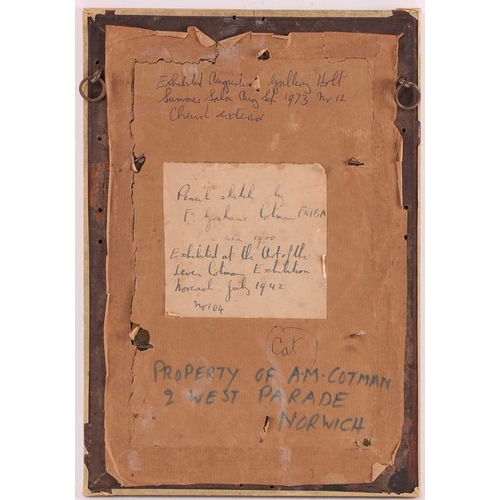 Exhibited Augustine Gallery Holt
Summer Salon Aug Sept 1973 No 12
Church exterior
Pencil sketch by
F. Grahame Cotman FRIBA
circa 1900
Exhibited at the Art of the
Seven Cotmans Exhibition
Norwich July 1942
No 104
Cat
PROPERTY OF A.M. COTMAN
2 WEST PARADE
NORWICH